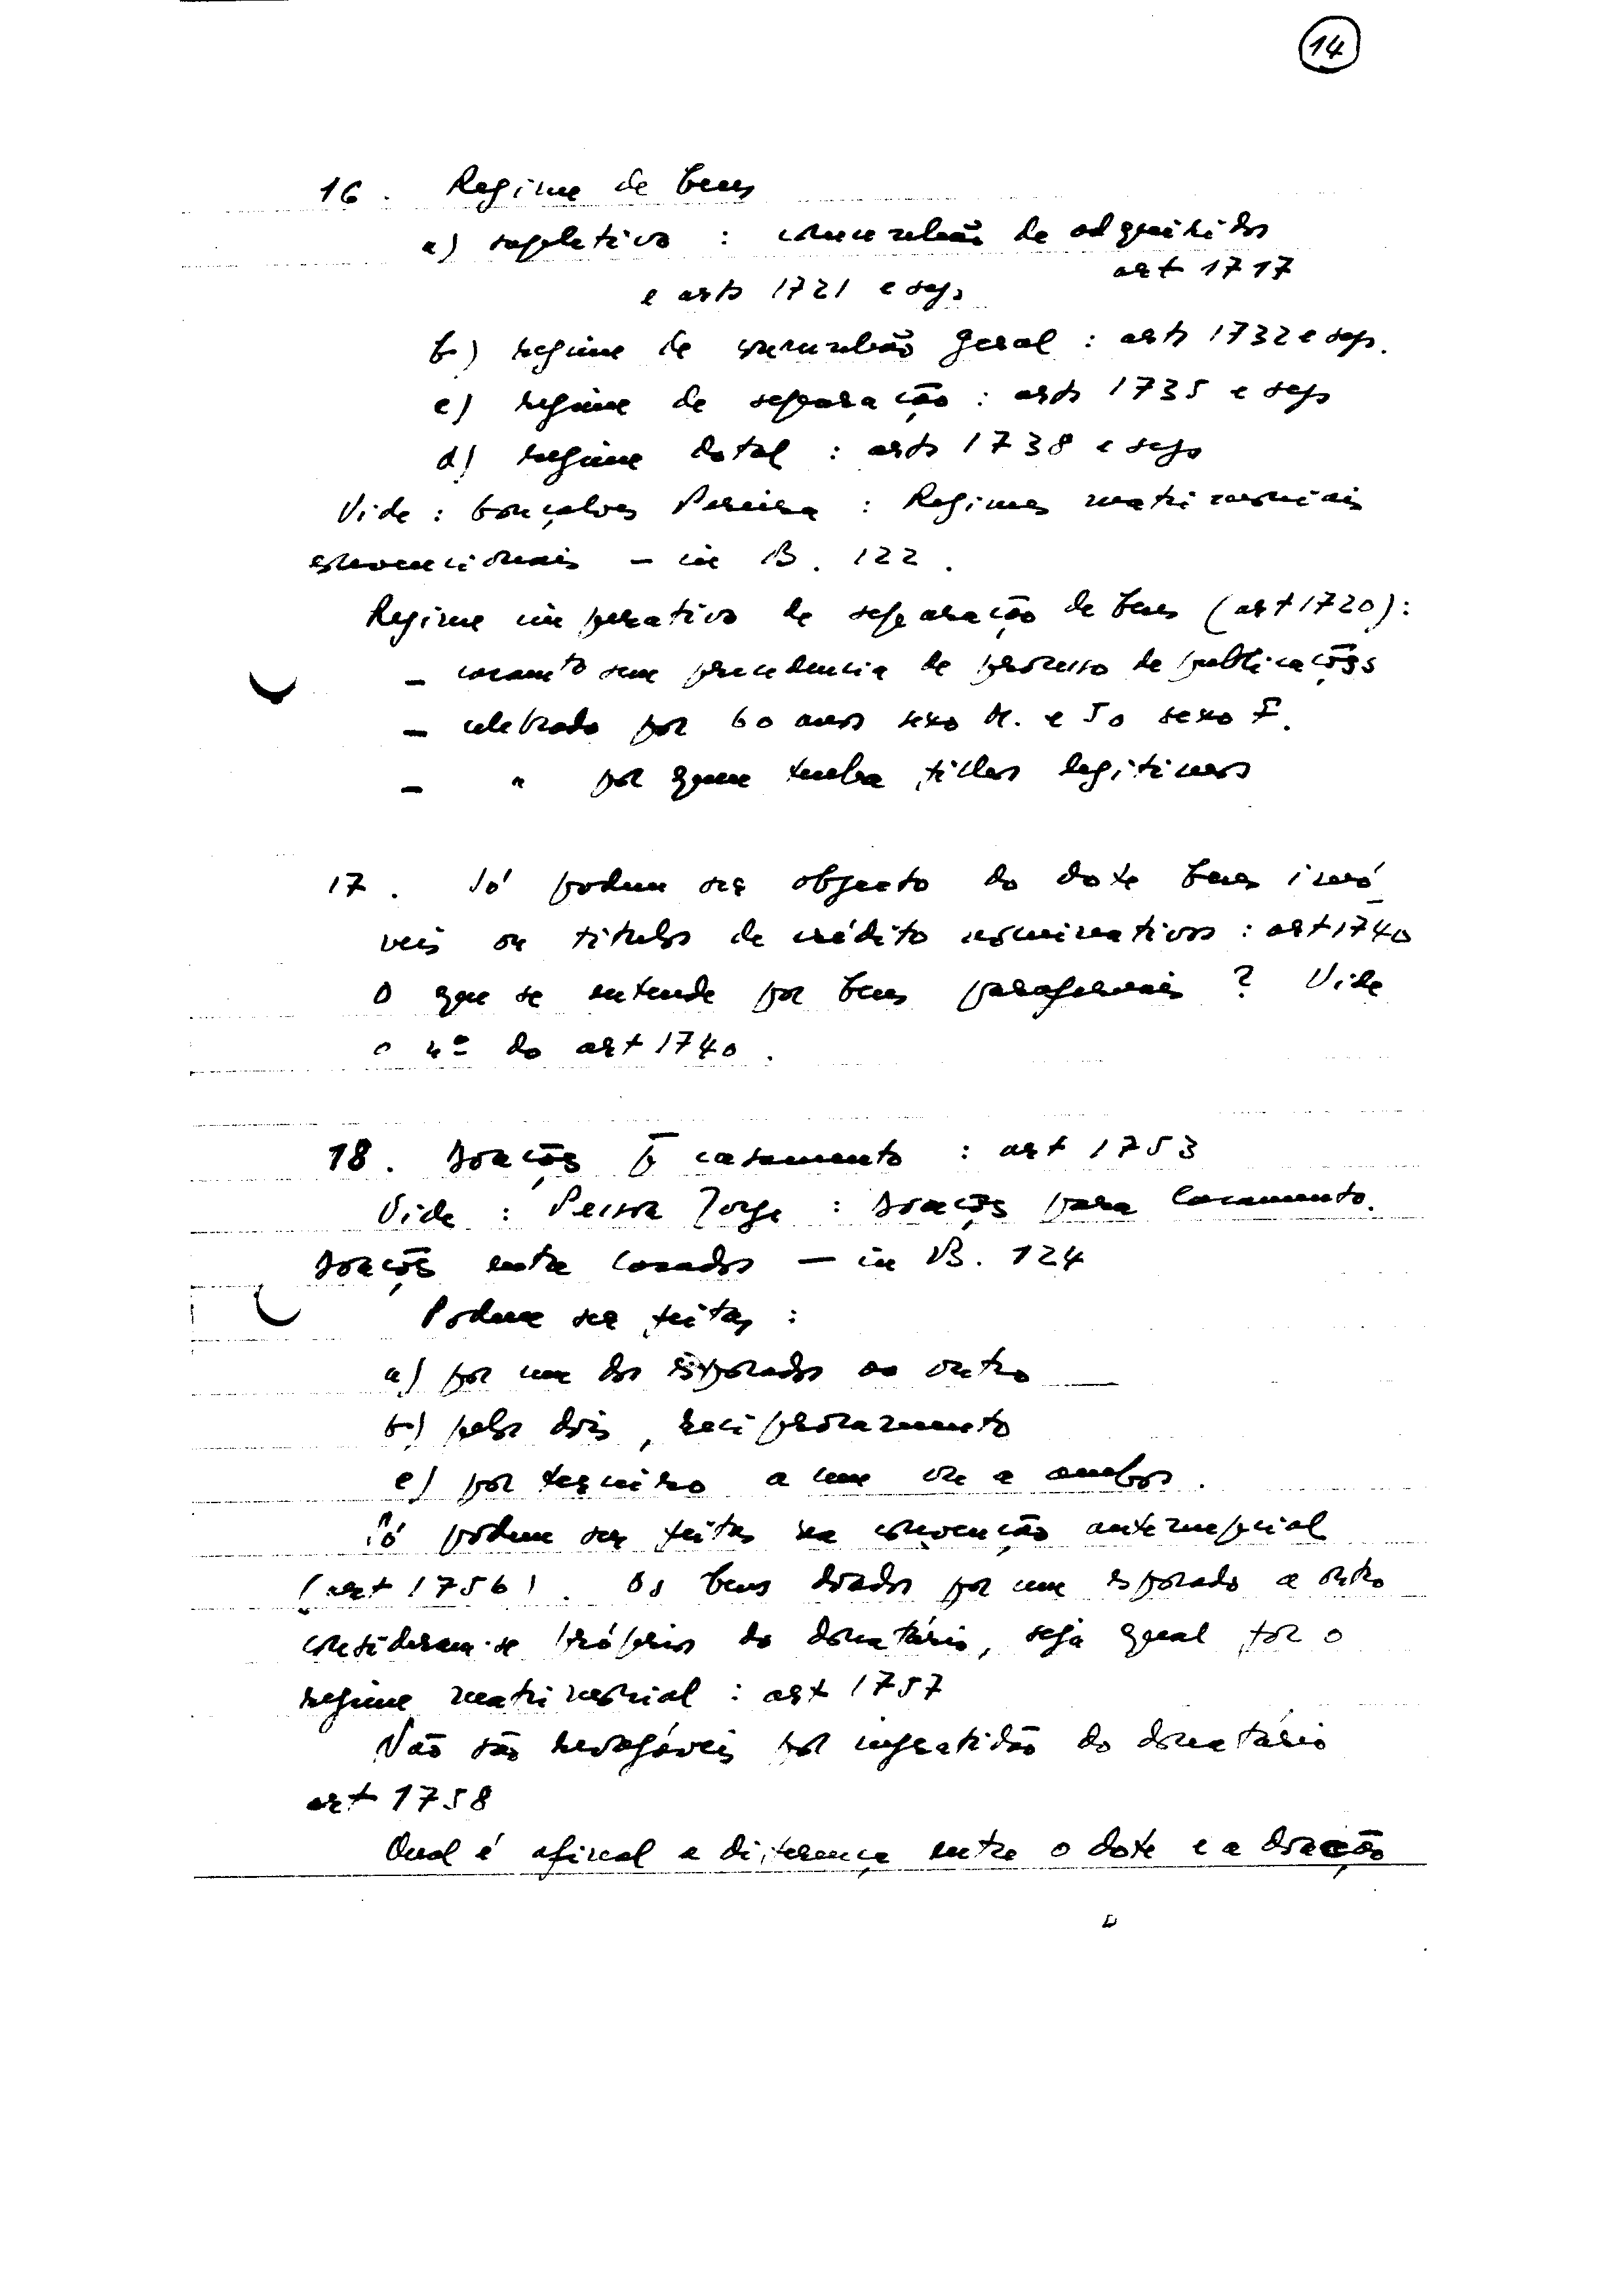 14
16. Regime de bens
a) supletivo : comunhão de adquiridos
art 1717
e arts 1721 e segs
b) regime de comunhão geral : arts 1732 e segs.
c) regime de separação : arts 1735 e segs
d) regime dotal : arts 1738 e segs
Vide : Gonçalves Pereira : Regimes matrimoniais
convencionais – in B. 122.
Regime imperativo de separação de bens (art 1720) :
– casamto sem precedencia de processo de publicações
– celebrado por 60 anos sexo M. e 50 sexo F.
– " por quem tenha filhos legitimos
17. Só podem ser objecto do dote bens imó
veis ou titulos de crédito nominativos : art 1740
O que se entende por bens parafernais ? Vide
o nº do art 1740.
18. Doações casamento : art 1753
Vide : Pessoa Jorge : Doações para Casamento.
Doações entre Casados — in B. 124
Podem ser feitas :
a) por um dos esposados ao outro
b) pelos dois, reciprocamente
c) por terceiro a um ou a ambos.
Só podem ser feitas na convenção antenupcial
(art 1756). Os bens doados por um esposado a outro
consideram-se próprios do donatário, seja qual for o
regime matrimonial : art 1757
Não são revogáveis por ingratidão do donatário
art 1758
Qual é afinal a diferença entre o dote e a doação